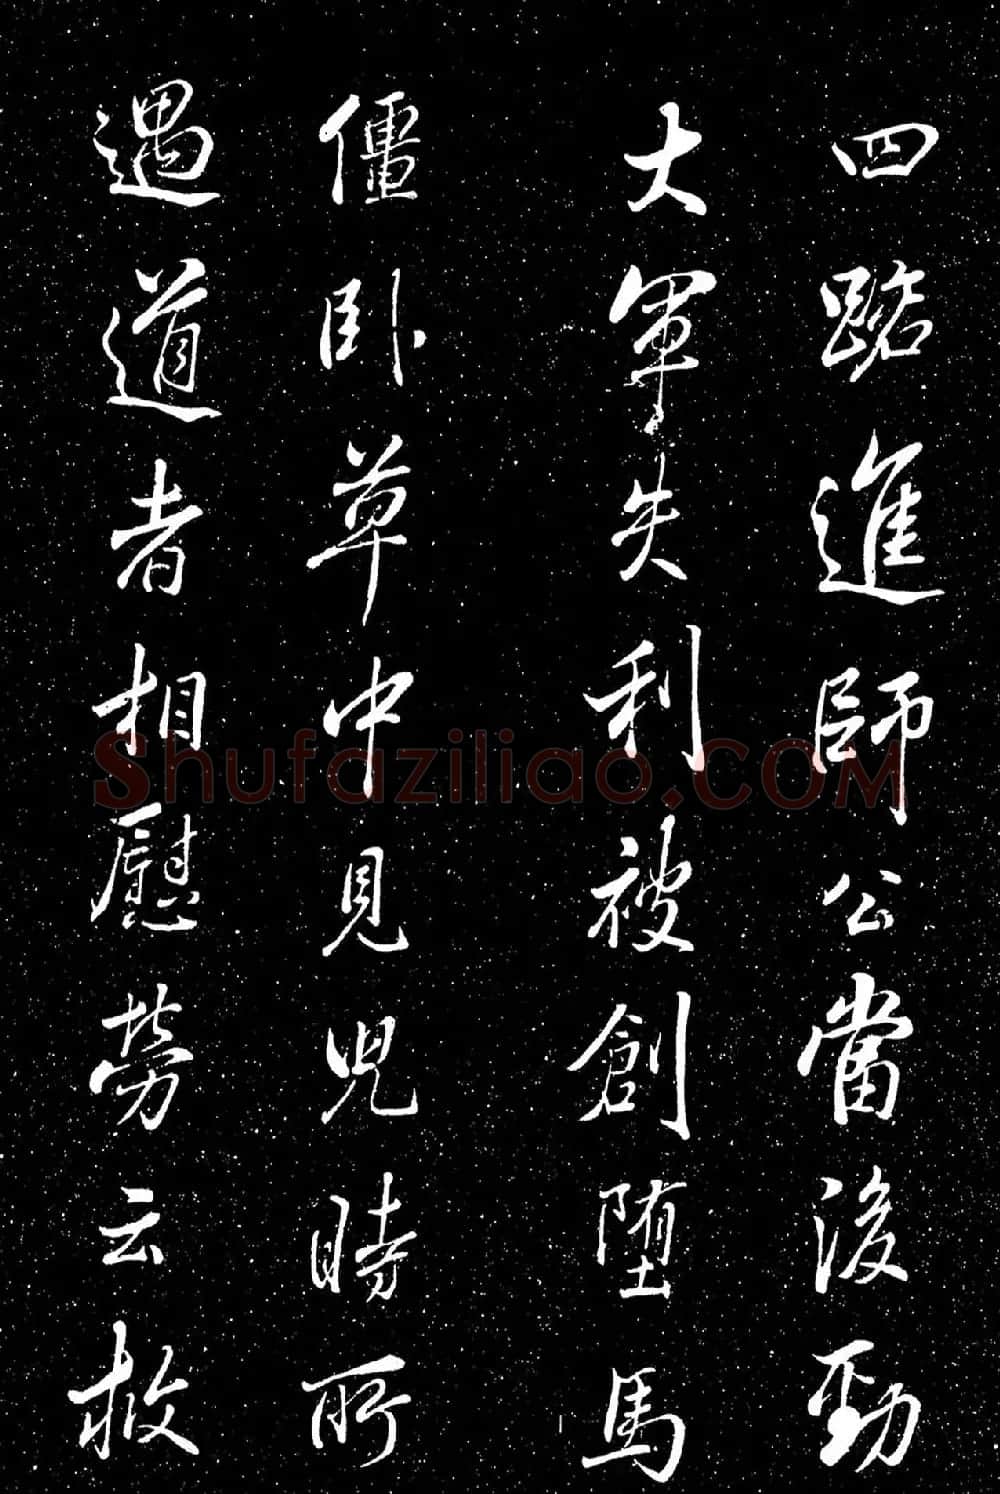 四踣進師公當後勁
大軍失利被創墮馬
僵卧草中見兒時所
遇道者相慰勞云救
Shufaziliao.COM